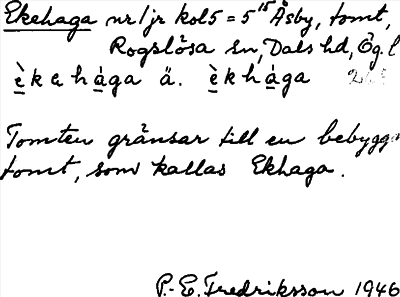 Ekehaga nr/jr kol5 = 5¹⁵ Åsby, tomt,
Rogslösa sn, Dals hd, Ög. l
è k e h å g a ä. è k h å g a
Tomten gränsar till en bebygg
tomt, som kallas Ekhaga.
P.-E. Fredriksson 1946